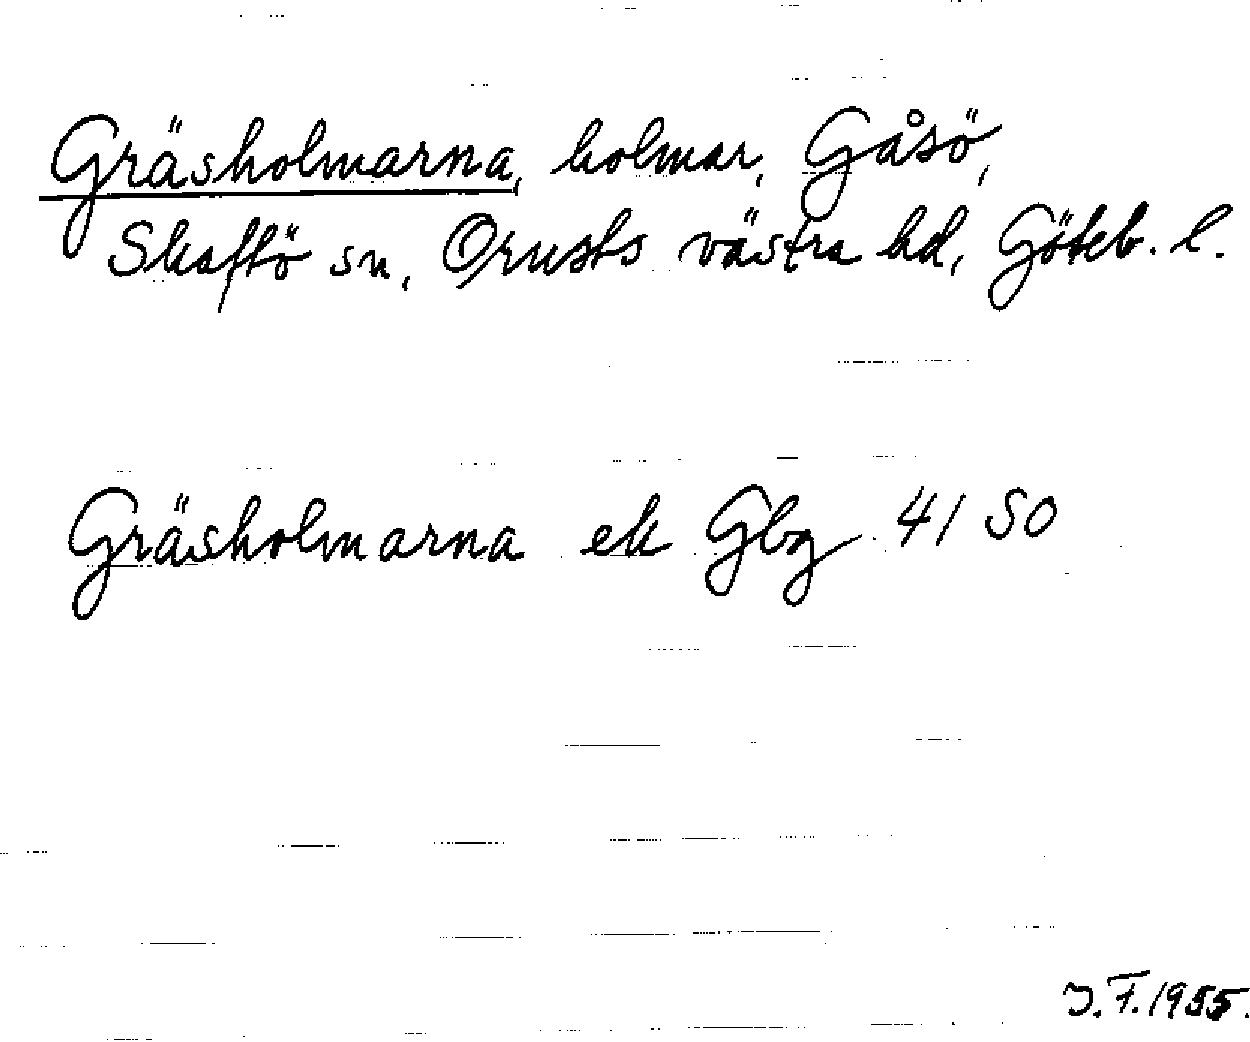 Gräsholmarna, holmar, Gåsö,
Skaftö sn, Orusts västra hd, Göteb. l.
Gräsholmarna ek Gbg 41 SO
J.F.1955.